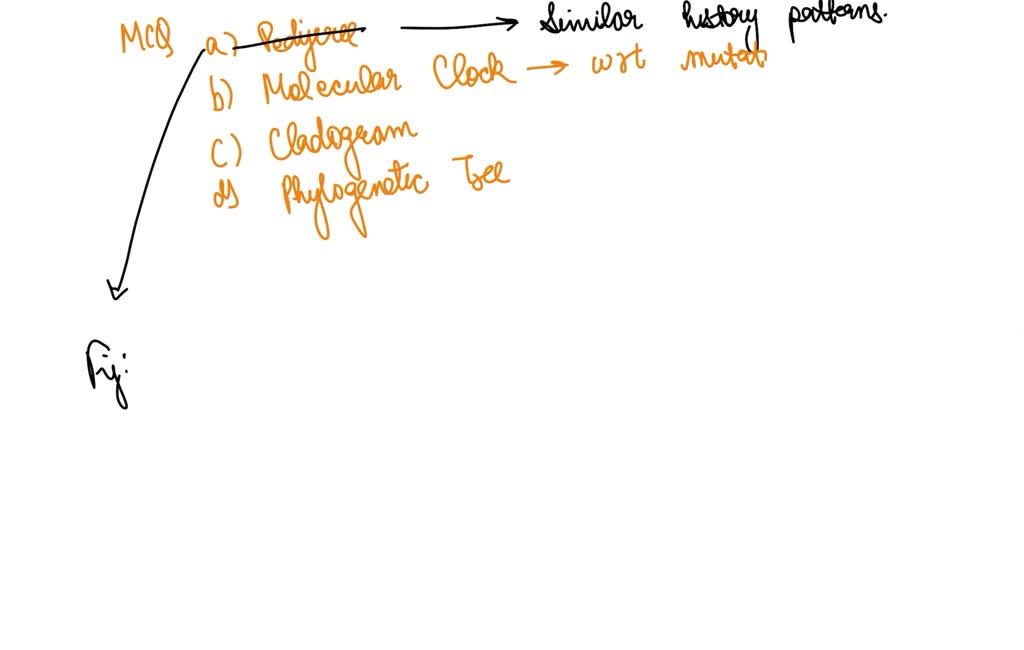 MCQ a) Pedigree → Similar history patterns.
b) Molecular Clock → wrt mutat
c) Cladogram
d) Phylogenetic Tree
Fig: